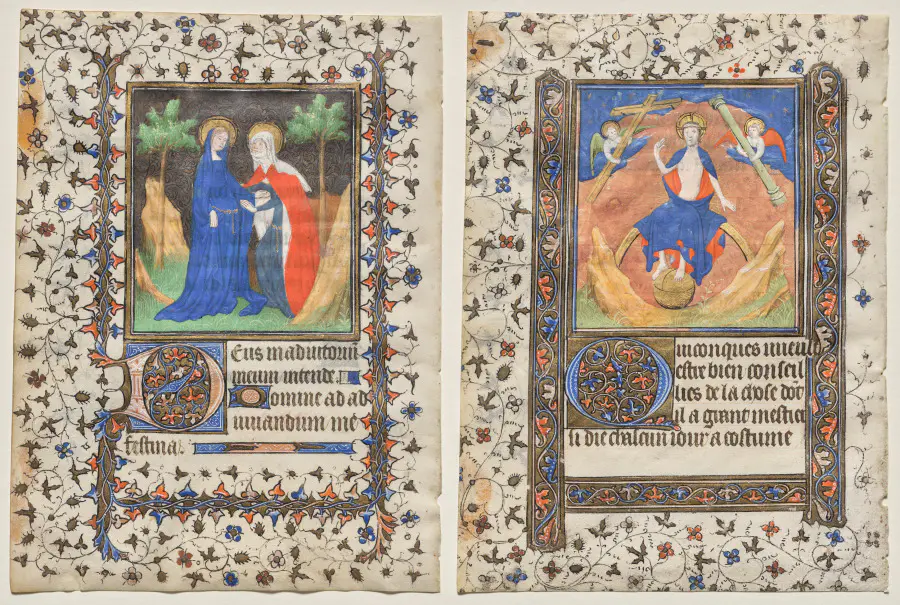 Deus in adiutoriu
meum intende.
Domine ad ad
iuuandum me
festina.
Quiconques uueult
estre bien conseil
lies de la chose dōt
il a grant mestier
si die chascun iour a costume